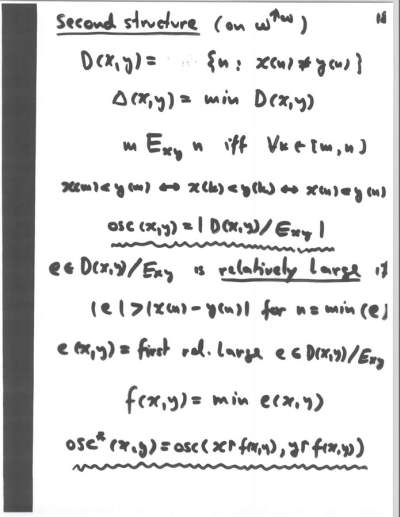 Second structure (on ω^↑ω) 18
D(x,y) = {n : x(n) ≠ y(n)}
Δ(x,y) = min D(x,y)
m E_xy n iff ∀k ∈ [m,n]
x(m)<y(m) ↔ x(k)<y(k) ↔ x(n)<y(n)
osc(x,y) = |D(x,y)/E_xy|
e ∈ D(x,y)/E_xy is relatively large if
|e| > |x(n) - y(n)| for n = min(e)
e(x,y) = first rel. large e ∈ D(x,y)/E_xy
f(x,y) = min e(x,y)
osc*(x,y) = osc(x↾f(x,y), y↾f(x,y))